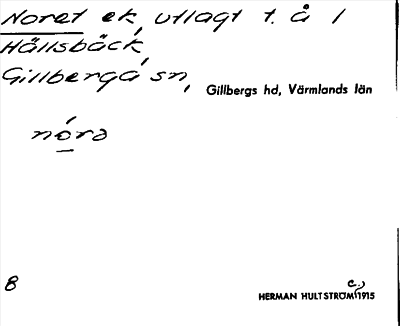 Noret ek, utlagt t. å i
Hällsbäck,
Gillberga sn,
Gillbergs hd, Värmlands län
nóra
8
c.
HERMAN HULTSTRÖM 1915